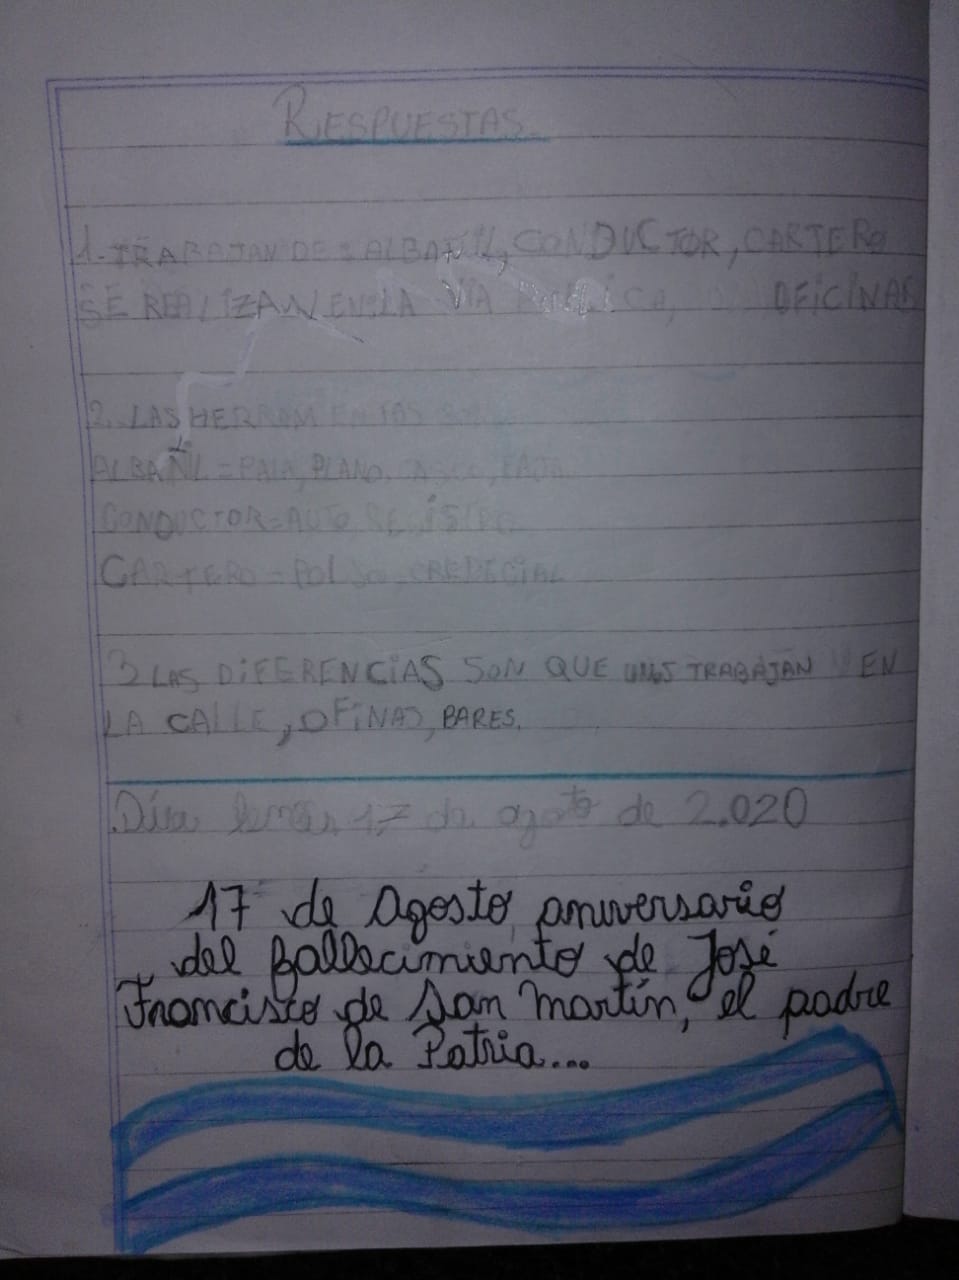 RESPUESTAS
1. TRABAJAN DE: ALBAÑIL, CONDUCTOR, CARTERO
SE REALIZAN EN LA VIA PUBLICA, OFICINAS
2. LAS HERRAMIENTAS SON
ALBAÑIL = PALA, PLANO, CASCO, FAJA
CONDUCTOR = AUTO,
CARTERO = BOLSO, CREDECIAL
3 LAS DIFERENCIAS SON QUE UNOS TRABAJAN EN
LA CALLE, OFINAS, BARES.
Día lunes 17 de agosto de 2.020
17 de Agosto, aniversario
del fallecimiento de José
Francisco de San Martín, el padre
de la Patria...